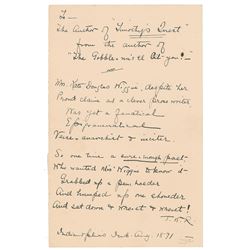 To —
The Author of "Timothy's Quest"
from the author of
"The Gobble-uns'll Git you!"
Mrs. Kate Douglas Wiggin, despite her
Proud claim as a clever prose writer
Was yet a fanatical
Epigrammatical
Verse-enwrapped & inciter.
So one time a sure-enough poet
Who wanted Mrs Wiggin to know it
Grabbed up a pen-header
And humped up one shoulder
And sat down & wroted & wroted!
J. W. R.
Indianapolis Ind. Aug. 1891